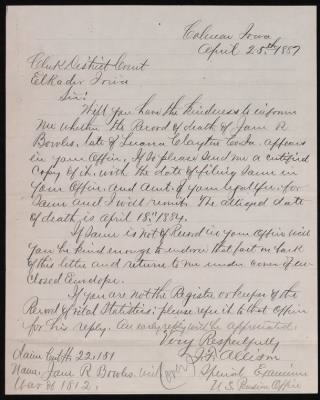 Colmar Iowa
April 25th 1887
Clerk District Court
Elkader Iowa
Sir:
Will you have the kindness to inform
me whether the Record of death of Jam R
Bowles, late of Luana Clayton Co Ia. appears
in your Office, If So please Send me a certified
Copy of it, with the date of filing Same in
your Office. and Amt. of your legal fee, for
Same and I will remit. The alleged date
of death is April 18th 1884.
If Same is not of Record in your Office will
you be kind enough to endorse that fact on back
of this letter and return to me under cover of en-
closed Envelope.
If you are not the Register or keeper of the
Record of vital Statistics; please refer it to that Officer
for his reply. An early reply will be appreciated.
Very Respectfully
Allison
Special Examiner
U.S. Pension Office
Claim 22,181
Name, Jam R Bowles.
War of 1812.
(over)